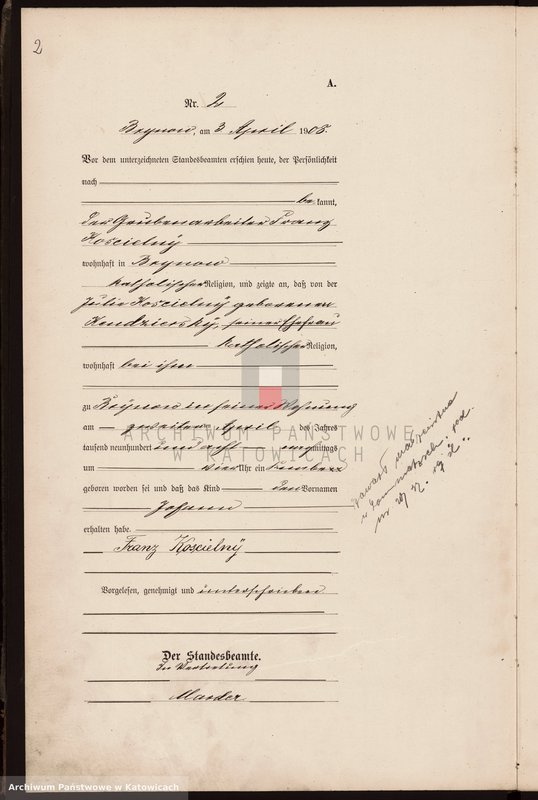 2
A.
Nr. 2
Brynow, am 3 April 1908.
Vor dem unterzeichneten Standesbeamten erschien heute, der Persönlichkeit
nach
be kannt,
der Grubenarbeiter Franz
Kościelny
wohnhaft in Brynow
katholischer Religion, und zeigte an, daß von der
Julie Kościelny geborenen
seiner Ehefrau
katholischer Religion,
wohnhaft bei ihm
zu Brynow in seiner Wohnung
am zweiten April des Jahres
tausend neunhundert und acht vormittags
um vier Uhr ein Knabe
geboren worden sei und daß das Kind den Vornamen
Johann
erhalten habe.
Franz Kościelny
Vorgelesen, genehmigt und unterschrieben
Der Standesbeamte.
In Vertretung
ARCHIWUM PAŃSTWOWE
W KATOWICACH
Archiwum Państwowe w Katowicach